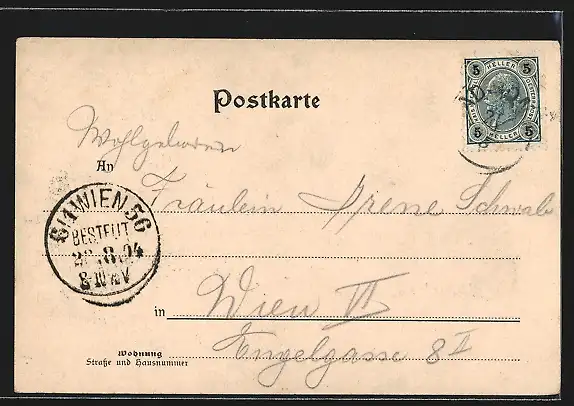 Postkarte
5 HELLER 5
5 HELLER 5
Wohlgeboren
An Fräulein Irene Schwab
6/1 WIEN 56
BESTELLT
8
in Wien VI
Wohnung
Straße und Hausnummer
Engelgasse 8 II